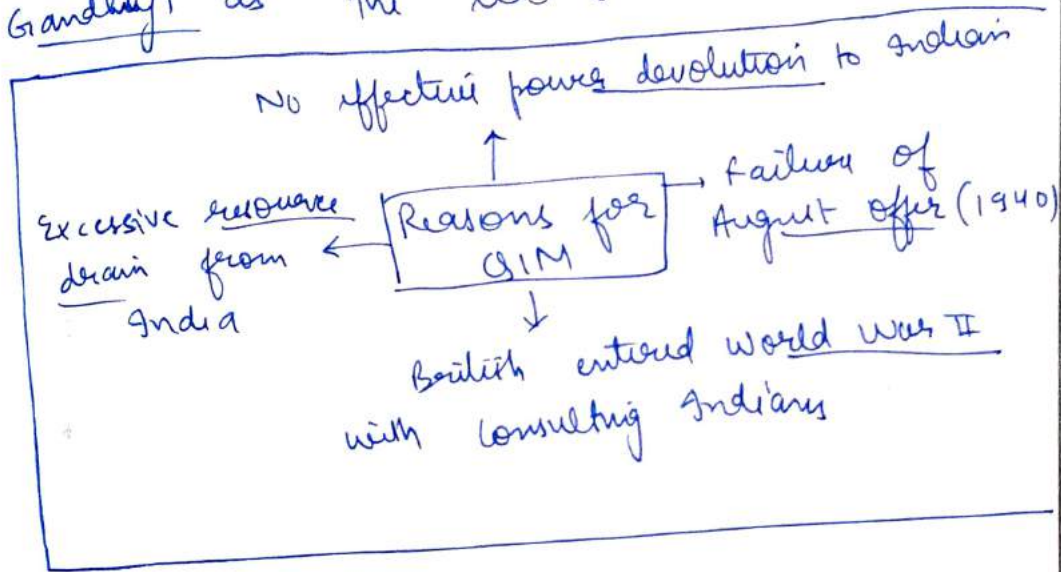 Gandhiji as the
No effective power devolution to Indian
Excessive resource
drain from
India
Reasons for
QIM
Failure of
August offer (1940)
British entered World War II
with consulting Indians